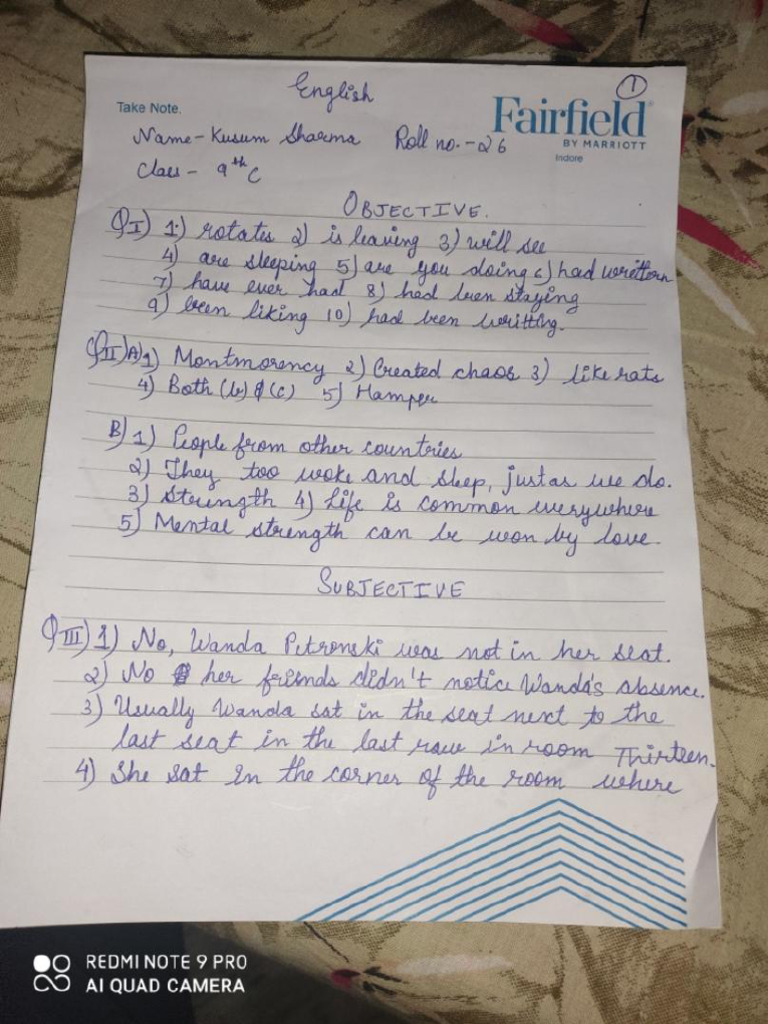 English
1
Take Note.
Fairfield
BY MARRIOTT
Indore
Name - Kusum Sharma Roll no. - 26
Class - 9th C
OBJECTIVE.
Q I) 1) rotates 2) is leaving 3) will see
4) are sleeping 5) are you doing 6) had writtern
7) have ever had 8) had been staying
9) been liking 10) had been writting.
Q II) A) 1) Montmorency 2) Created chaos 3) like rats
4) Both (b) & (c) 5) Hamper
B) 1) People from other countries
2) They too woke and sleep, just as we do.
3) Strength 4) Life is common everywhere
5) Mental strength can be won by love.
SUBJECTIVE
Q III) 1) No, Wanda Petronski was not in her seat.
2) No her friends didn't notice Wanda's absence.
3) Usually Wanda sat in the seat next to the
last seat in the last row in room Thirteen.
4) She sat in the corner of the room where
REDMI NOTE 9 PRO
AI QUAD CAMERA